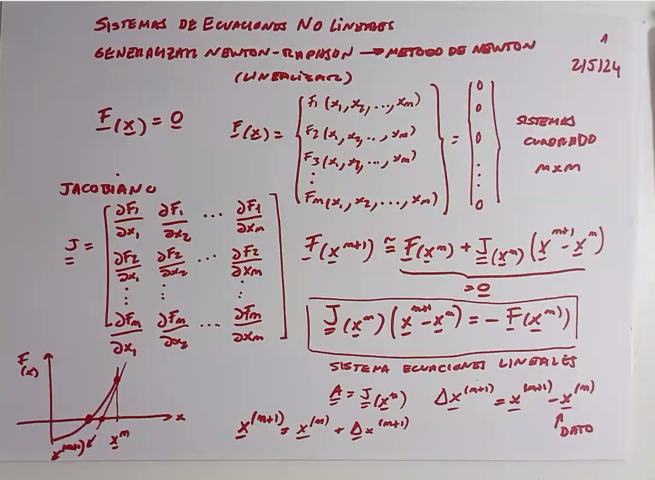 SISTEMAS DE ECUACIONES NO LINEALES
GENERALIZAR NEWTON-RAPHSON → METODO DE NEWTON
(LINEALIZAR)
1
2/5/24
F(x) = 0
F(x) = { F1(x1, x2, ..., xm)
F2(x1, x2, ..., xm)
F3(x1, x2, ..., xm)
⋮
Fm(x1, x2, ..., xm) } = { 0 0 0 ⋮ 0 }
SISTEMAS
CUADRADO
m×m
JACOBIANO
J = [ ∂F1/∂x1 ∂F1/∂x2 ... ∂F1/∂xm
∂F2/∂x1 ∂F2/∂x2 ... ∂F2/∂xm
⋮ ⋮ ⋮
∂Fm/∂x1 ∂Fm/∂x2 ... ∂Fm/∂xm ]
F(x^(m+1)) ≅ F(x^m) + J(x^m) (x^(m+1) - x^m)
= 0
J(x^m) (x^(m+1) - x^m) = - F(x^m)
SISTEMA ECUACIONES LINEALES
A = J(x^m) Δx^(m+1) = x^(m+1) - x^(m)
DATO
x^(m+1) = x^(m) + Δx^(m+1)
F(x)
x
x^(m+1) x^m